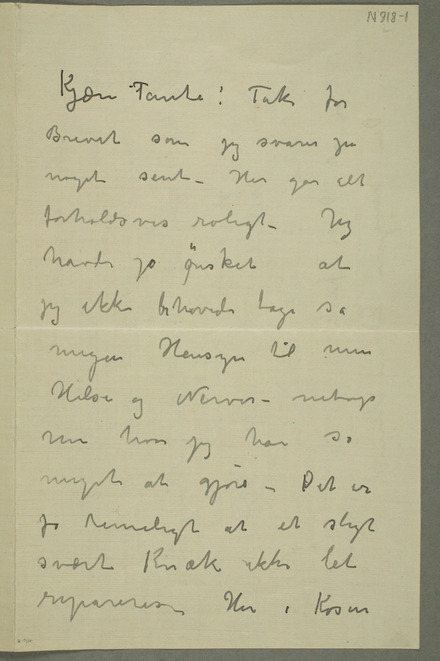 N 918-1
Kjære Tante! Tak for
Brevet som jeg svarer på
noget sent – Her går alt
forholdsvis roligt – Jeg
havde jo önsket at
jeg ikke behøvede tage så
megen Hensyn til min
Helse og Nerver – netop
nu hvor jeg har så
meget at gjöre – Det er
jo rimeligt at et sligt
svært Knæk ikke let
repareres – Her i Kösen